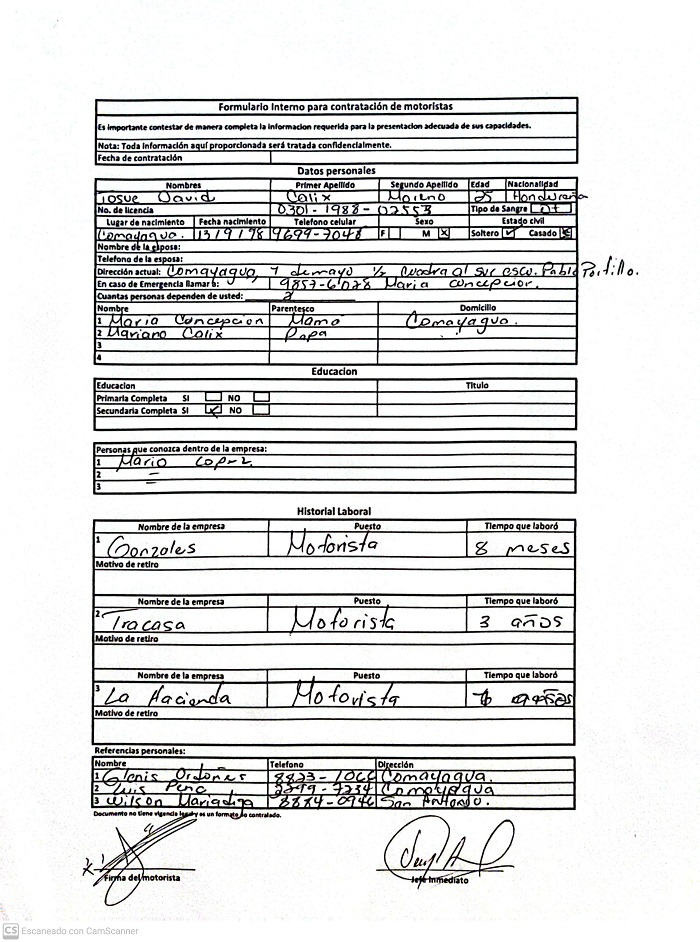 Formulario Interno para contratación de motoristas
Es importante contestar de manera completa la informacion requerida para la presentacion adecuada de sus capacidades.
Nota: Toda información aquí proporcionada será tratada confidencialmente.
Fecha de contratación
Datos personales
Nombres Primer Apellido Segundo Apellido Edad Nacionalidad
Josue David Calix Moreno 25 Hondureña
No. de licencia 0301-1988-02553 Tipo de Sangre O+
Lugar de nacimiento Fecha nacimiento Telefono celular Sexo Estado civil
Comayagua. 13/9/98 9699-7048 F M X Soltero Casado
Nombre de la esposa:
Telefono de la esposa:
Dirección actual: Comayagua, 7 de mayo 1/2 cuadra al sur escu. Pablo Portillo.
En caso de Emergencia llamar a: 9857-6078 Maria Concepcion.
Cuantas personas dependen de usted: 2
Nombre Parentesco Domicilio
1 Maria Concepcion Mama Comayagua.
2 Mariano Calix Papa
3
4
Educacion
Educacion Titulo
Primaria Completa SI NO
Secundaria Completa SI NO
Personas que conozca dentro de la empresa:
1 Mario Lopez.
2
3
Historial Laboral
Nombre de la empresa Puesto Tiempo que laboró
1 Gonzales Motorista 8 meses
Motivo de retiro
Nombre de la empresa Puesto Tiempo que laboró
2. Tracasa Motorista 3 años
Motivo de retiro
Nombre de la empresa Puesto Tiempo que laboró
3 La Hacienda Motorista
Motivo de retiro
Referencias personales:
Nombre Telefono Dirección
1 Glenis Ordoñes 8823-1066 Comayagua.
2 Luis Peña Comayagua
3 Wilson 8884-0946 San Antonio.
Documento no tiene vigencia legal y es un formato no controlado.
Firma del motorista Jefe Inmediato
CS Escaneado con CamScanner